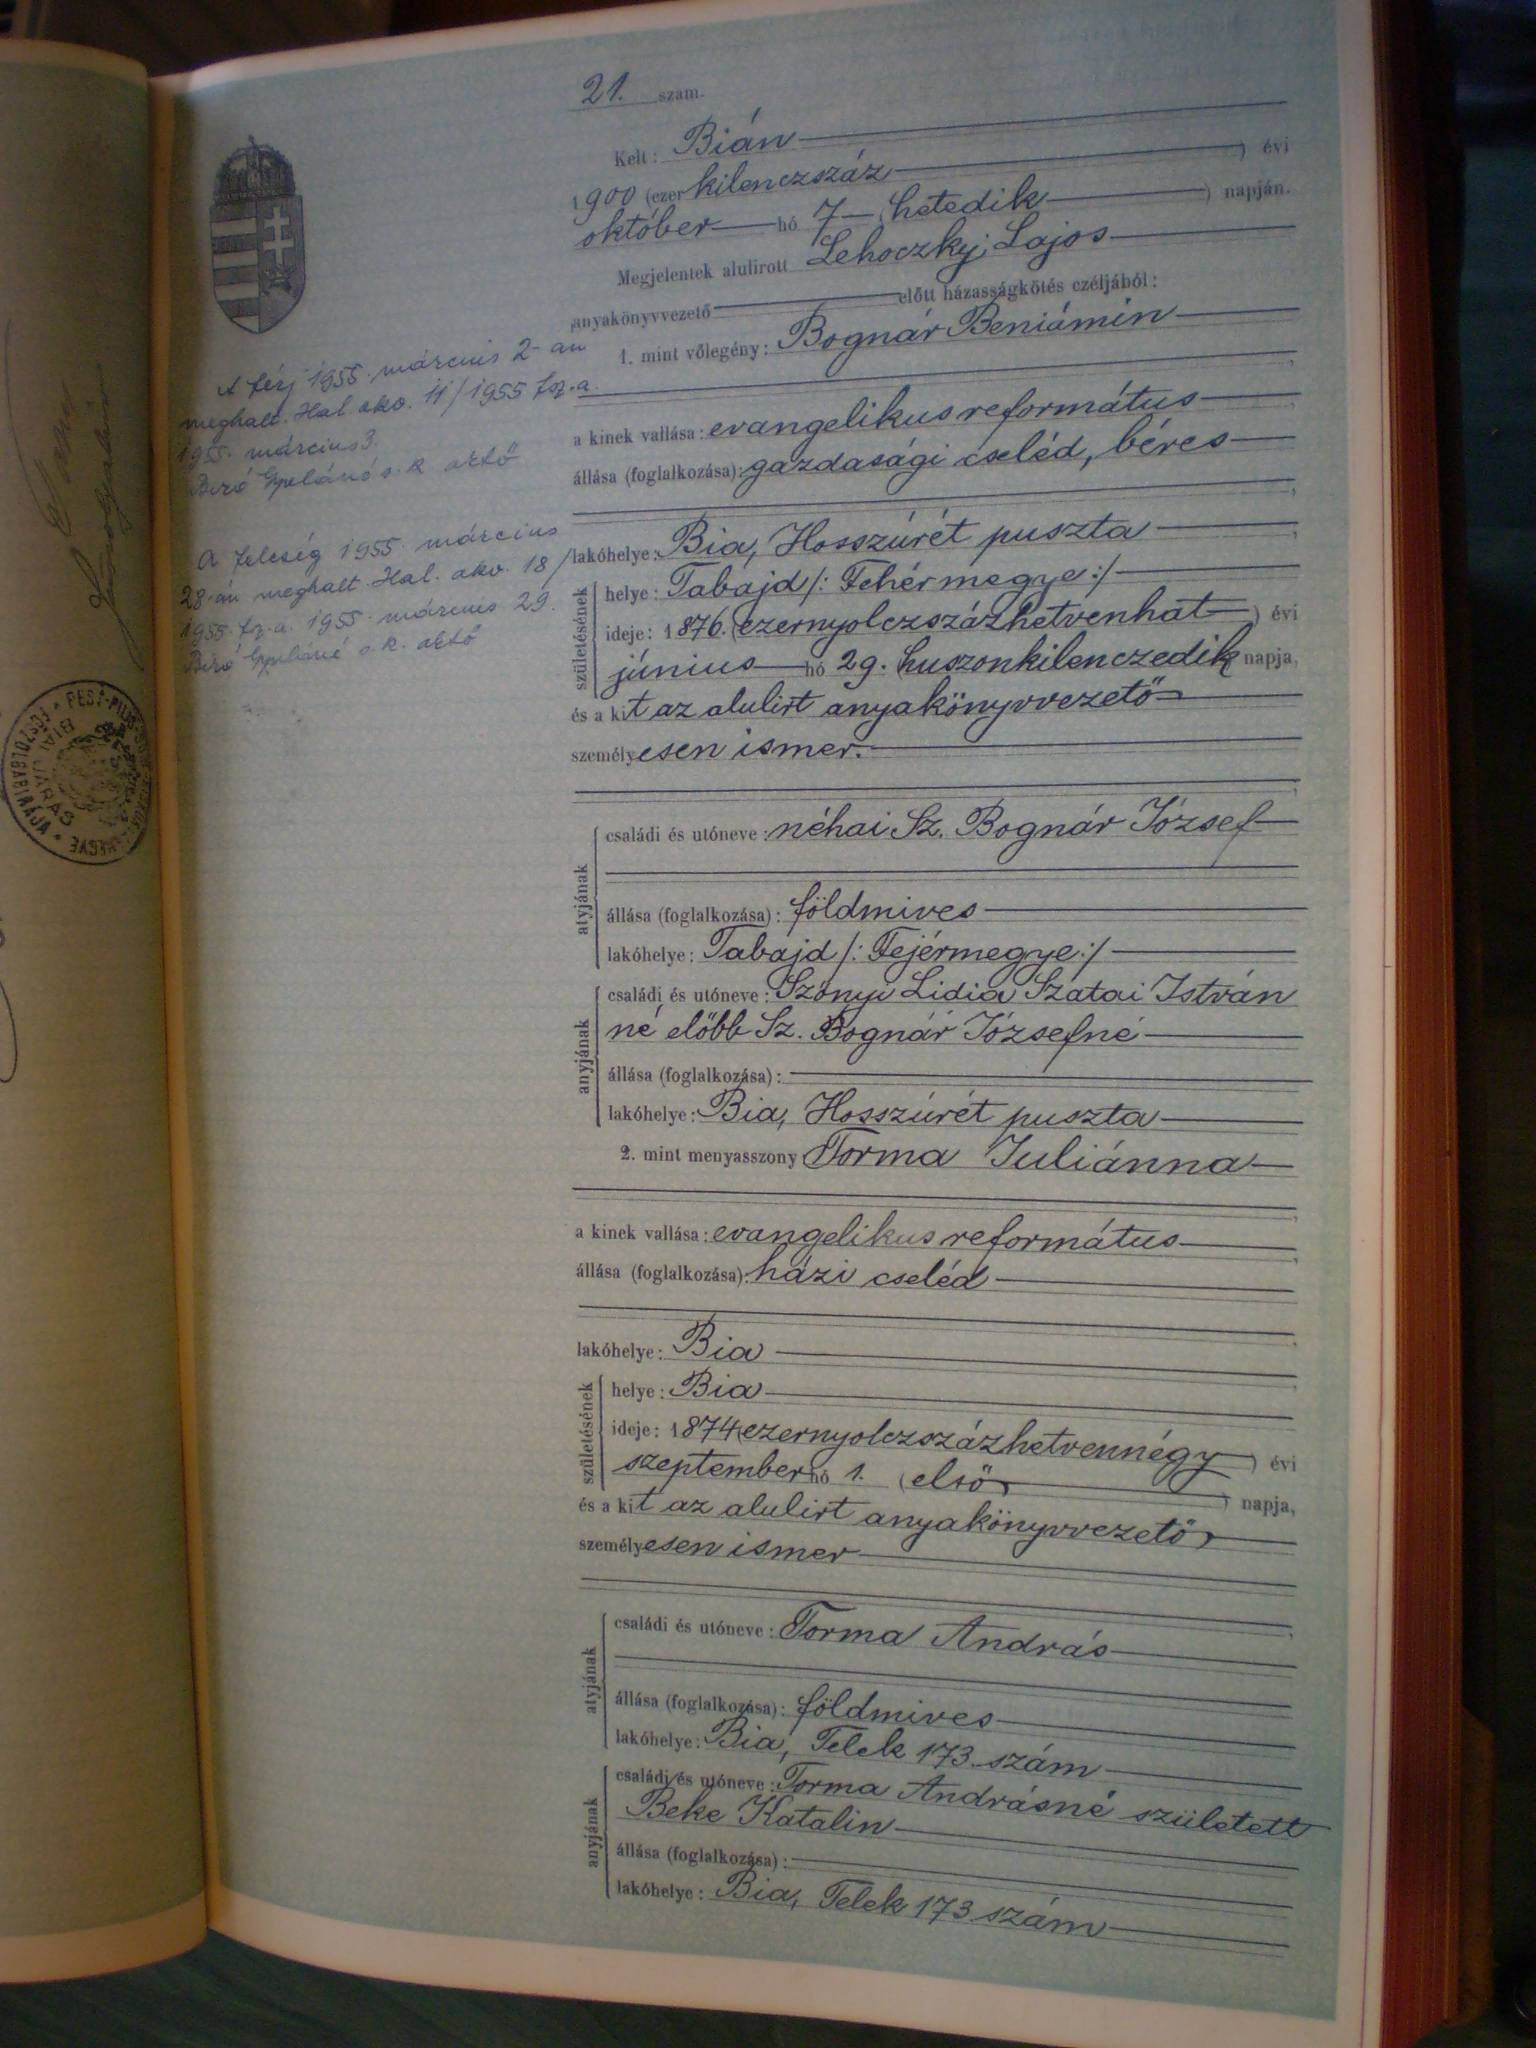 21. szám.
Kelt: Bián
1900 (ezer kilenczszáz) évi
október hó 7 (hetedik) napján.
Megjelentek alulirott Lehoczky Lajos
anyakönyvvezető előtt házasságkötés czéljából:
1. mint vőlegény: Bognár Beniámin
a kinek vallása: evangelikus református
állása (foglalkozása): gazdasági cseléd, béres
lakóhelye: Bia, Hosszúrét puszta
születésének
helye: Tabajd /: Fehérmegye:/
ideje: 1876. (ezernyolczszázhetvenhat) évi
június hó 29. (huszonkilenczedik napja,
és a kit az alulirt anyakönyvvezető
személyesen ismer.
atyjának
családi és utóneve: néhai Sz. Bognár József
állása (foglalkozása): földmives
lakóhelye: Tabajd /: Fejérmegye:/
anyjának
családi és utóneve: Szőnyi Lidia Szatai István
né előbb Sz. Bognár Józsefné
állása (foglalkozása):
lakóhelye: Bia, Hosszúrét puszta
2. mint menyasszony Torma Juliánna
a kinek vallása: evangelikus református
állása (foglalkozása): házi cseléd
lakóhelye: Bia
születésének
helye: Bia
ideje: 1874 (ezernyolczszázhetvennégy) évi
szeptember hó 1. (első) napja,
és a kit az alulirt anyakönyvvezető
személyesen ismer
atyjának
családi és utóneve: Torma András
állása (foglalkozása): földmives
lakóhelye: Bia, Telek 173 szám
anyjának
családi és utóneve: Torma Andrásné született
Beke Katalin
állása (foglalkozása):
lakóhelye: Bia, Telek 173 szám
A férj 1955. március 2-án
meghalt. Hal. akv. 11/1955 fsz. a.
1955. március 3.
Biró s. k.
A feleség 1955. március
28-án meghalt. Hal. akv. 18/
1955. fsz. a. 1955. március 29.
Biró s. k.
BIAI JÁRÁS